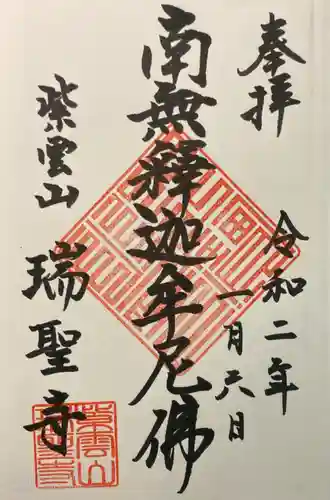 奉拝
令和二年
一月六日
南無釋迦牟尼佛
紫雲山
瑞聖寺